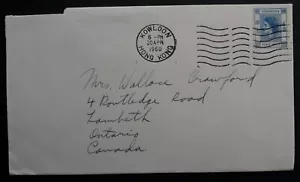 KOWLOON
6 - PM
20 APR
1960
HONG KONG
Mrs. Wallace Crawford
4 Routledge Road
Lambeth
Ontario
Canada